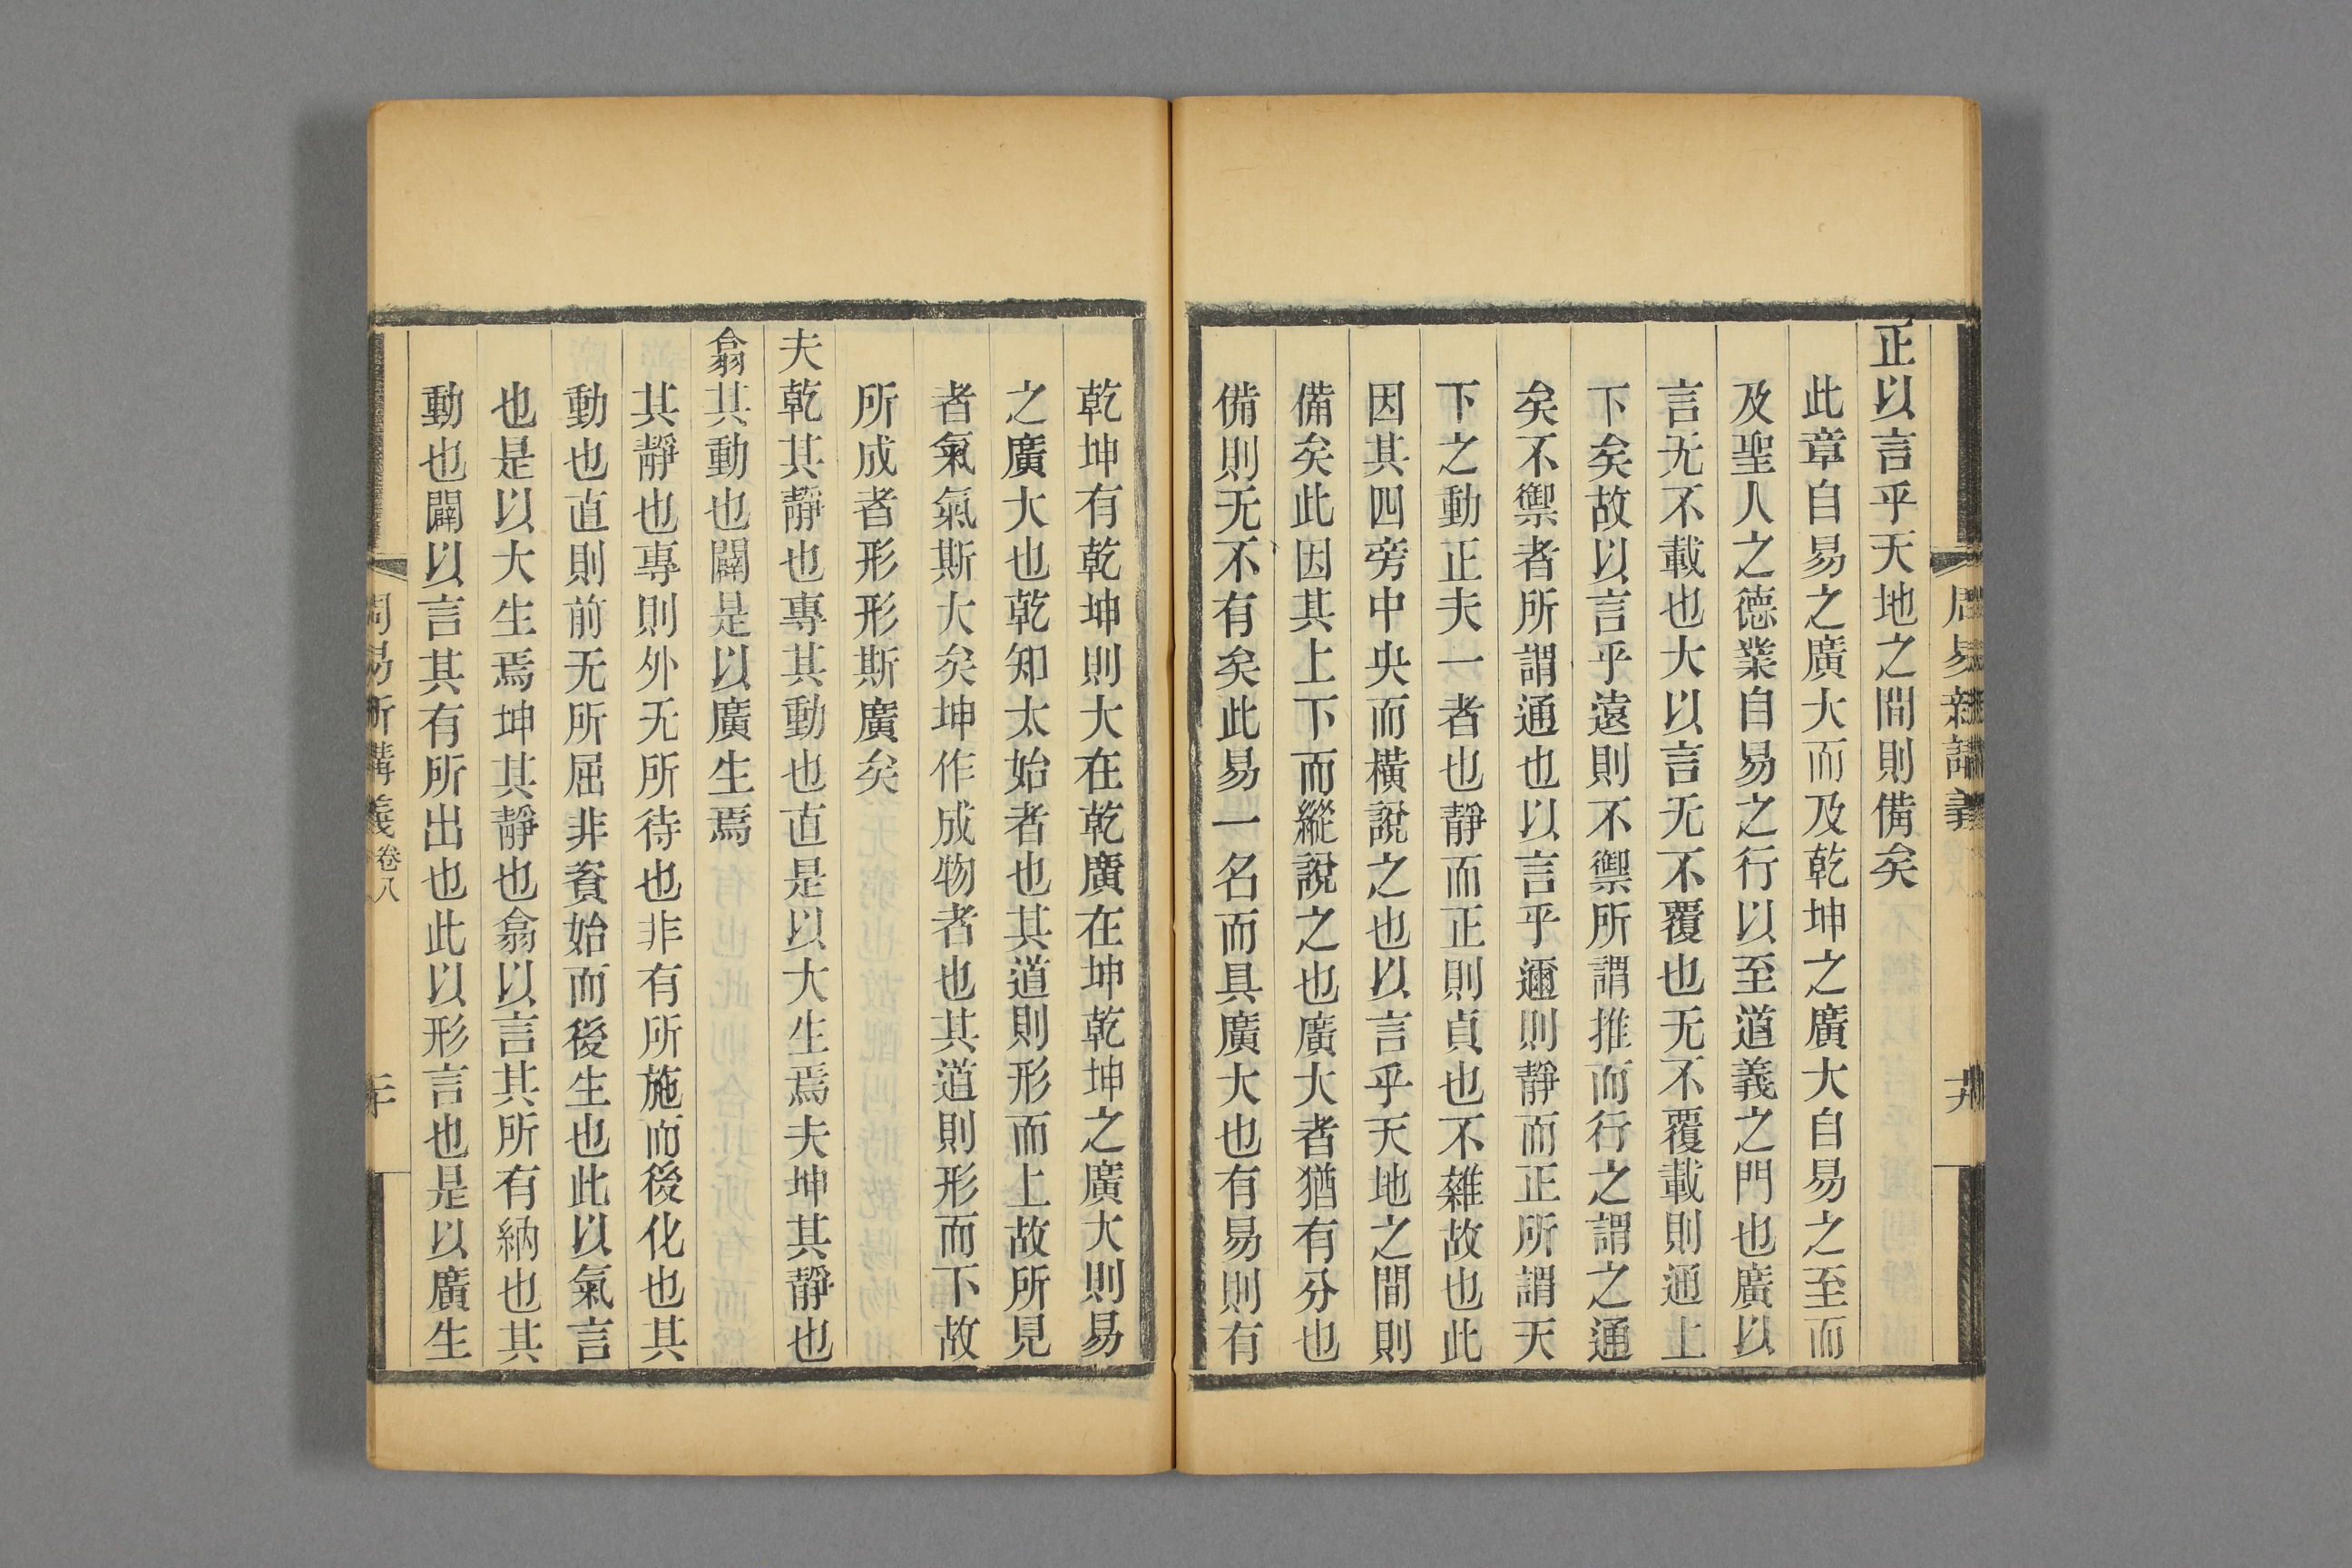 周易新講義
十九
正以言乎天地之間則備矣
此章自易之廣大而及乾坤之廣大自易之至而
及聖人之德業自易之行以至道義之門也廣以
言无不載也大以言无不覆也无不覆載則通上
下矣故以言乎遠則不禦所謂推而行之謂之通
矣不禦者所謂通也以言乎邇則靜而正所謂天
下之動正夫一者也靜而正則貞也不雜故也此
因其四旁中央而橫說之也以言乎天地之間則
備矣此因其上下而縱說之也廣大者猶有分也
備則无不有矣此易一名而具廣大也有易則有
乾坤有乾坤則大在乾廣在坤乾坤之廣大則易
之廣大也乾知太始者也其道則形而上故所見
者氣氣斯大矣坤作成物者也其道則形而下故
所成者形形斯廣矣
夫乾其靜也專其動也直是以大生焉夫坤其靜也
翕其動也闢是以廣生焉
其靜也專則外无所待也非有所施而後化也其
動也直則前无所屈非資始而後生也此以氣言
也是以大生焉坤其靜也翕以言其所有納也其
動也闢以言其有所出也此以形言也是以廣生
周易新講義 卷八
二十